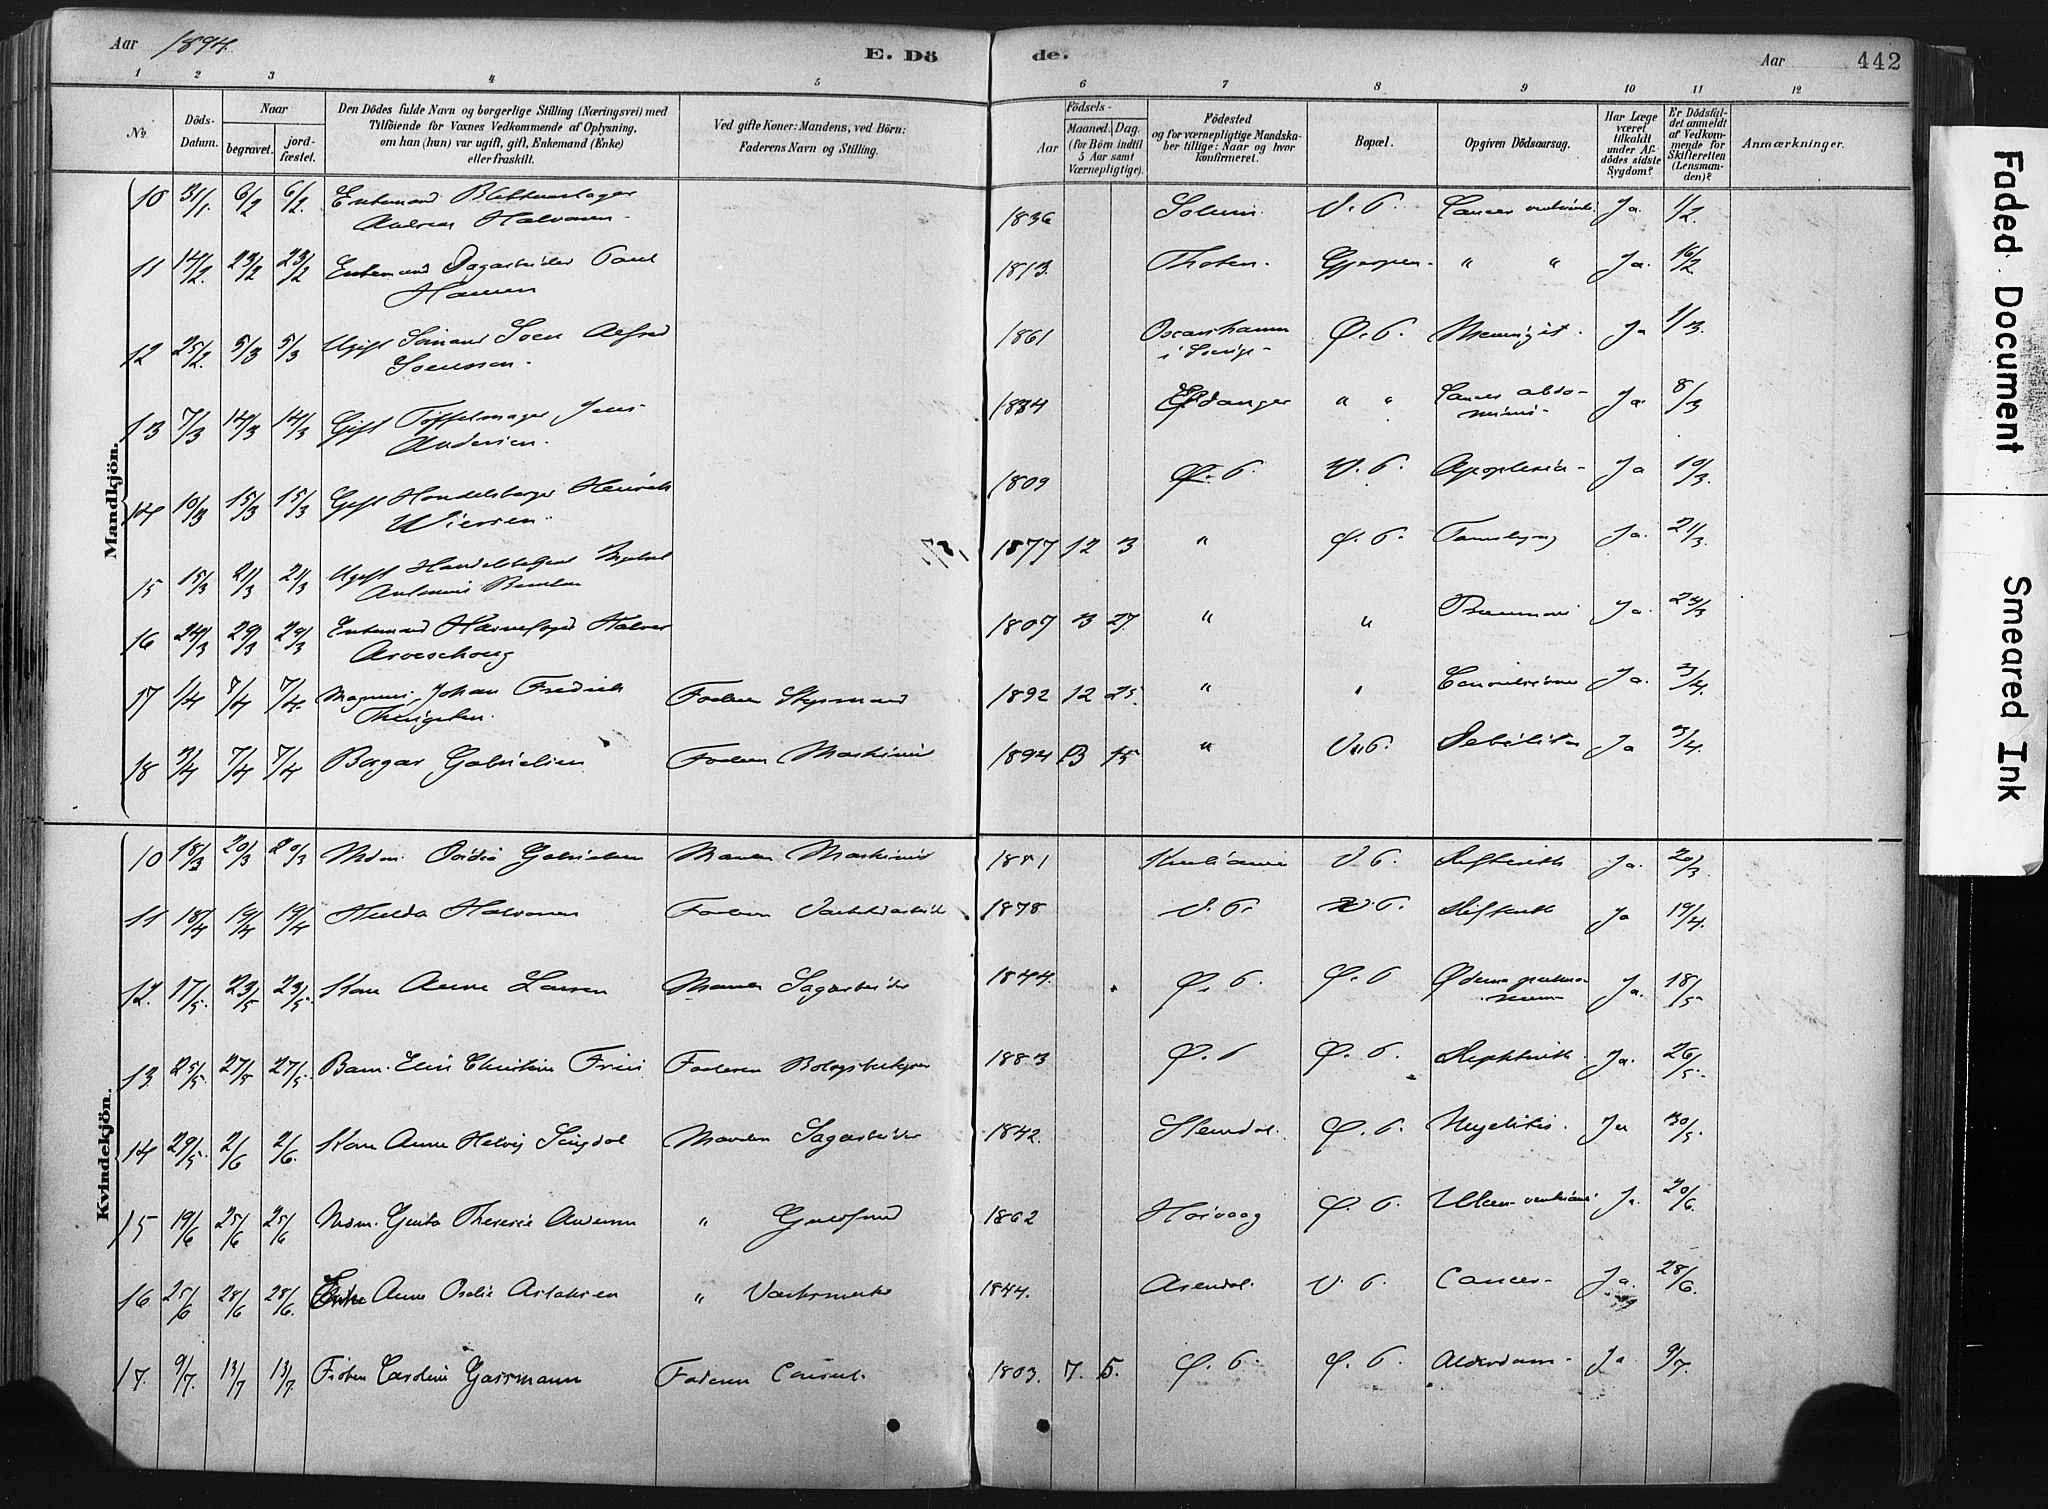 Aar 1894.
E. Dö de.
Aar
442
1 2 3 4 5 6 7 8 9 10 11 12
No.
Döds-Datum.
Naar
begravet.
jord-fæstet.
Den Dödes fulde Navn og borgerlige Stilling (Næringsvei) med
Tilföiende for Voxnes Vedkommende af Oplysning,
om han (hun) var ugift, gift, Enkemand (Enke)
eller fraskilt.
Ved gifte Koner: Mandens, ved Börn:
Faderens Navn og Stilling.
Födsels-
Aar
Maaned. Dag.
(for Börn indtil
5 Aar samt
Værnepligtige).
Födested
og for værnepligtige Mandska-
ber tillige: Naar og hvor
konfirmeret.
Bopæl.
Opgiven Dödsaarsag.
Har Læge
været
tilkaldt
under Af-
dödes sidste
Sygdom?
Er Dödsfal-
det anmeldt
af Vedkom-
mende for
Skifteretten
(Lensman-
den)?
Anmærkninger.
Mandkjön.
10 31/1. 6/2 6/2. Enkemand
Andreas Halvorsen. 1836 Solum. V. P. Cancer ventriculi. Ja. 1/2.
11 14/2. 23/2 23/2 Enkemand Dagarbeider Paul
Hansen 1813. Thoten. Gjerpen. " " Ja. 16/2
12 25/2. 5/3 5/3 Ugift Sömand Sven Alfred
Svensson. 1861 Oscarshamn
i Sverige Ø. P. Meningit. Ja 1/3.
13 7/3 14/3 14/3 Gift Töffelmager Jens
Andersen. 1834 Eidanger " " Cancer abdo-
minis Ja. 8/3
14 10/3 15/3 15/3 Gift Handelsborger Henrik
Wiersen. 1809 Ø. P. V. P. Apoplexia Ja 10/3.
15 15/3 21/3 21/3 Ugift
Antonius 1877 12 3 " Ø. P. Ja. 21/3.
16 24/3 29/3 29/3 Enkemand Havnefoged Halvor
Arveschoug 1807 3 27. " " Ja. 24/3
17 1/4 7/4 7/4. Magnus Johan Fredrik
Faderen Styrmand 1892 12 25. " " Convulsioner Ja. 3/4.
18 3/4 7/4 7/4 Borgar Gabrielsen Faderen Maskinist 1894 3 15 " V. P. Debilitas Ja 3/4.
Kvindekjön.
10 18/3 20/3 20/3 Mdm. Gabrielsen Manden Maskinist 1851 Kristiania V. P. Difterith Ja. 20/3
11 18/4 19/4 19/4 Hulda Halvorsen Faderen 1878 V. P. V. P. Difterith Ja 19/4.
12. 17/5. 23/5 23/5. Kone Anne Larsen Manden Sagarbeider 1844. Ø. P. Ø. P Ødema pulmo-
num Ja. 18/5
13 25/5 27/5 27/5. Barn Elise Christine Friis Faderen 1883 Ø. P Ø. P. Diphterith. Ja. 26/5.
14 29/5. 2/6 2/6. Kone Anne Helvig Manden Sagarbeider 1842. Ø. P. Myelitis. Ja 30/5.
15 19/6 25/6 25/6 Mdm. Therese Andersen " Guldsmed 1862 Høivaag Ø. P. Ulcus ventriculi Ja. 20/6.
16 25/6 28/6 28/6. Enke Anne Aslaksen " 1844. Arendal. V. P. Cancer Ja. 28/6.
17. 9/7. 13/7 13/7. Fröken Caroline Gassmann Faderen Consul 1803. 7. 5. Ø. P. Ø. P. Alderdom Ja 9/7.
Faded Document
Smeared Ink